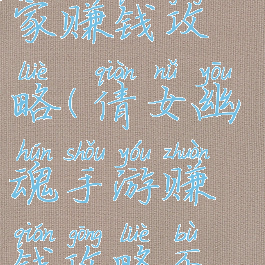 家赚钱攻
lüè qiàn nǚ yōu
略(倩女幽
hún shǒu yóu zhuàn
魂手游赚
qián gōng lüè bù
钱攻略不